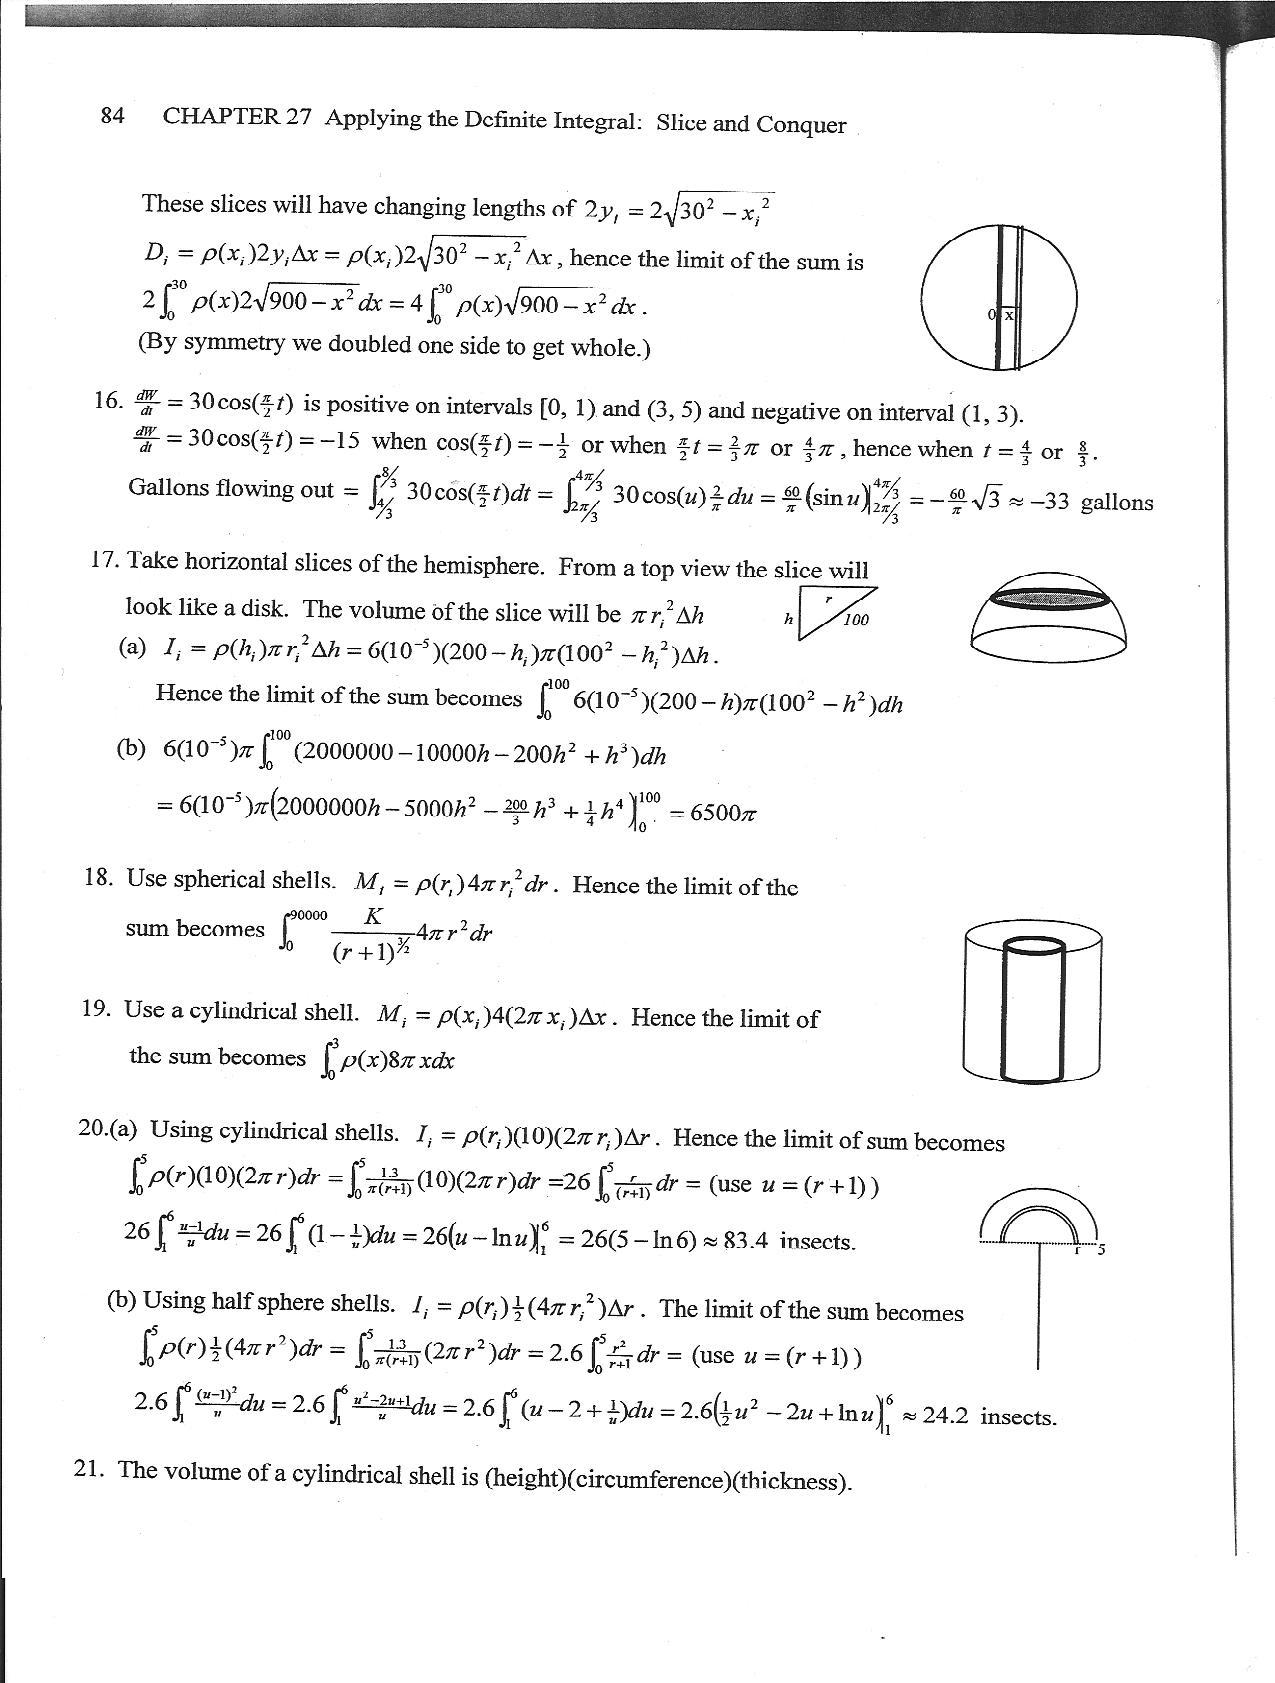 84 CHAPTER 27 Applying the Definite Integral: Slice and Conquer
These slices will have changing lengths of 2yᵢ = 2√(30² − xᵢ²)
Dᵢ = ρ(xᵢ)2yᵢΔx = ρ(xᵢ)2√(30² − xᵢ²) Δx, hence the limit of the sum is
2∫₀³⁰ ρ(x)2√(900 − x²) dx = 4∫₀³⁰ ρ(x)√(900 − x²) dx.
(By symmetry we doubled one side to get whole.)
0 x
16. dW/dt = 30cos(π/2 t) is positive on intervals [0, 1) and (3, 5) and negative on interval (1, 3).
dW/dt = 30cos(π/2 t) = −15 when cos(π/2 t) = −1/2 or when π/2 t = 2/3 π or 4/3 π, hence when t = 4/3 or 8/3.
Gallons flowing out = ∫_{4/3}^{8/3} 30cos(π/2 t)dt = ∫_{2π/3}^{4π/3} 30cos(u) 2/π du = 60/π (sin u)|_{2π/3}^{4π/3} = −60/π √3 ≈ −33 gallons
17. Take horizontal slices of the hemisphere. From a top view the slice will
look like a disk. The volume of the slice will be π rᵢ²Δh
h r 100
(a) Iᵢ = ρ(hᵢ)π rᵢ²Δh = 6(10⁻⁵)(200 − hᵢ)π(100² − hᵢ²)Δh.
Hence the limit of the sum becomes ∫₀¹⁰⁰ 6(10⁻⁵)(200 − h)π(100² − h²)dh
(b) 6(10⁻⁵)π ∫₀¹⁰⁰ (2000000 − 10000h − 200h² + h³)dh
= 6(10⁻⁵)π(2000000h − 5000h² − 200/3 h³ + 1/4 h⁴)|₀¹⁰⁰ = 6500π
18. Use spherical shells. Mᵢ = ρ(rᵢ)4π rᵢ²dr. Hence the limit of the
sum becomes ∫₀⁹⁰⁰⁰⁰ K/(r + 1)^{3/2} 4π r²dr
19. Use a cylindrical shell. Mᵢ = ρ(xᵢ)4(2π xᵢ)Δx. Hence the limit of
the sum becomes ∫₀³ ρ(x)8π xdx
20.(a) Using cylindrical shells. Iᵢ = ρ(rᵢ)(10)(2π rᵢ)Δr. Hence the limit of sum becomes
∫₀⁵ ρ(r)(10)(2π r)dr = ∫₀⁵ 1.3/π(r+1) (10)(2π r)dr =26∫₀⁵ r/(r+1) dr = (use u = (r + 1))
26∫₁⁶ (u−1)/u du = 26∫₁⁶ (1 − 1/u)du = 26(u − ln u)|₁⁶ = 26(5 − ln 6) ≈ 83.4 insects.
r 5
(b) Using half sphere shells. Iᵢ = ρ(rᵢ)1/2(4π rᵢ²)Δr. The limit of the sum becomes
∫₀⁵ ρ(r)1/2(4π r²)dr = ∫₀⁵ 1.3/π(r+1) (2π r²)dr = 2.6∫₀⁵ r²/(r+1) dr = (use u = (r + 1))
2.6∫₁⁶ (u−1)²/u du = 2.6∫₁⁶ (u²−2u+1)/u du = 2.6∫₁⁶ (u − 2 + 1/u)du = 2.6(1/2 u² − 2u + ln u)|₁⁶ ≈ 24.2 insects.
21. The volume of a cylindrical shell is (height)(circumference)(thickness).